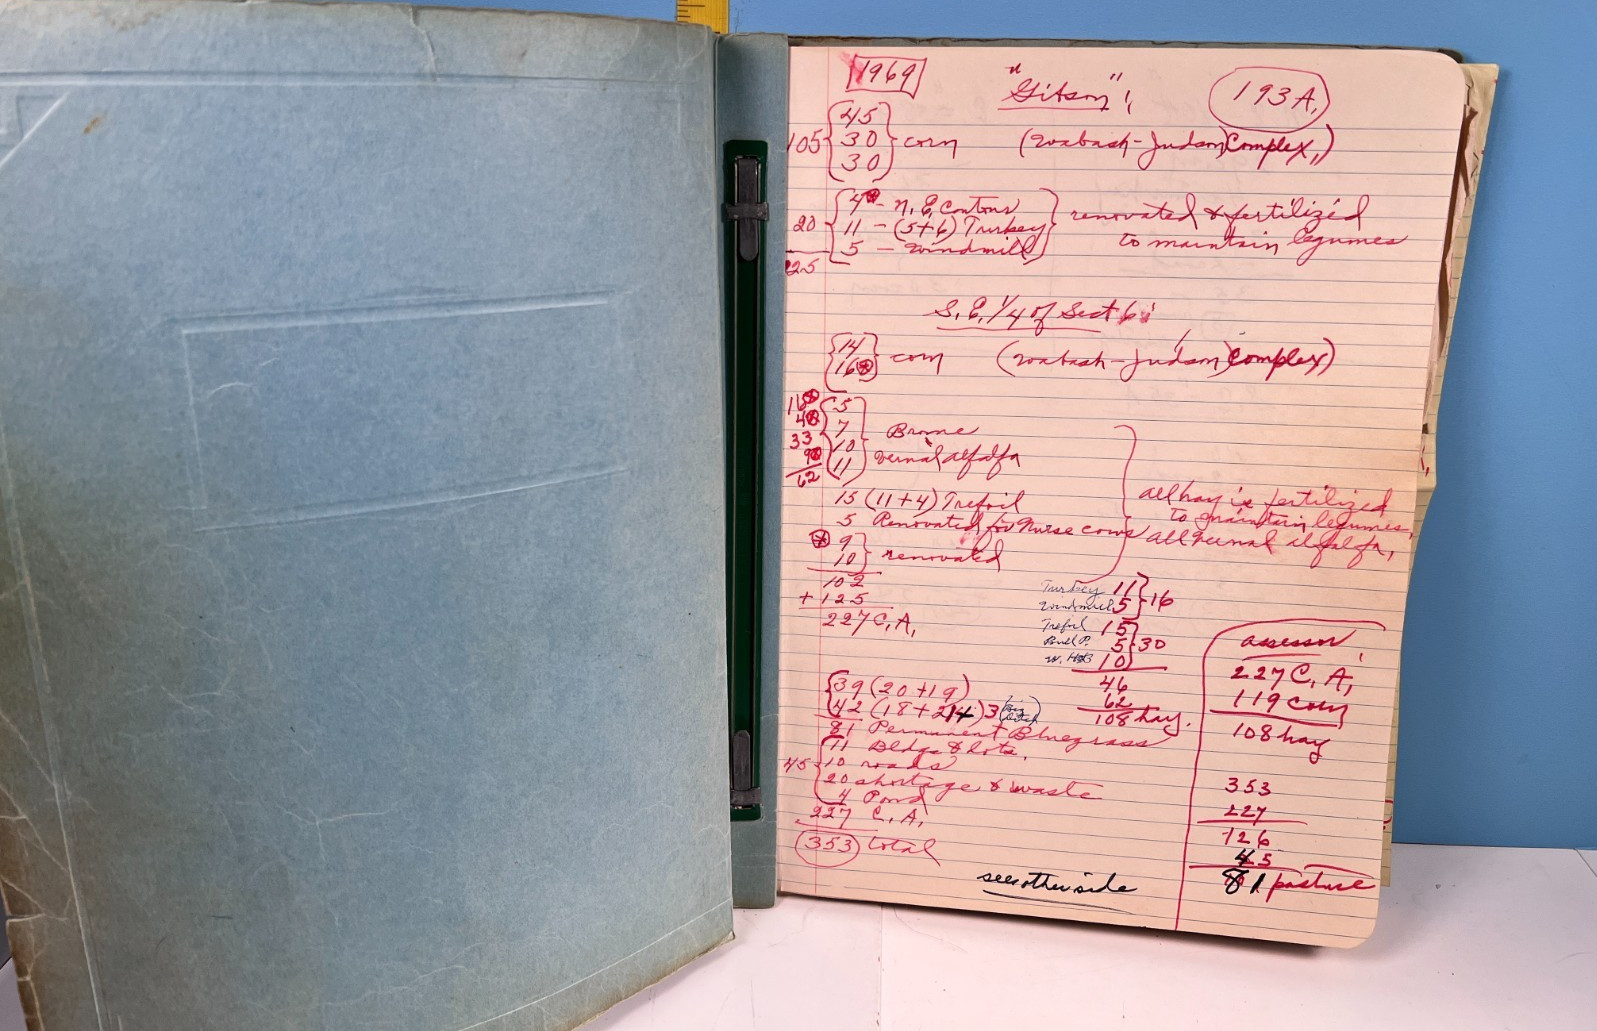 1969 "Gibson", 193A,
45
105 30 corn (Wabash-Judson Complex,)
30
4 - N.E. contours
20 11 - (5+6) Turkey renovated & fertilized
5 - windmill to maintain legumes
125
S.E. 1/4 of Sect 6:
14
16 corn (Wabash-Judson Complex)
16 5
4 7 Brome
33 10 vernal alfalfa
9 11
62
15 (11+4) Trefoil all hay is fertilized
5 Renovated for Nurse cows to maintain legumes,
9 all vernal alfalfa,
10 renovated
102
+125
227 C.A.
Turkey 11
windmill 5 16
Trefoil 15
5 30
10
46
62
108 hay.
39 (20+19)
42 (18+214) 3
81 Permanent Bluegrass
11 Bldgs & lots,
45 10 roads
20 shortage & waste
4 Pond
227 C.A,
353 total
see other side
assessor
227 C, A,
119 corn
108 hay
353
227
126
45
81 pasture